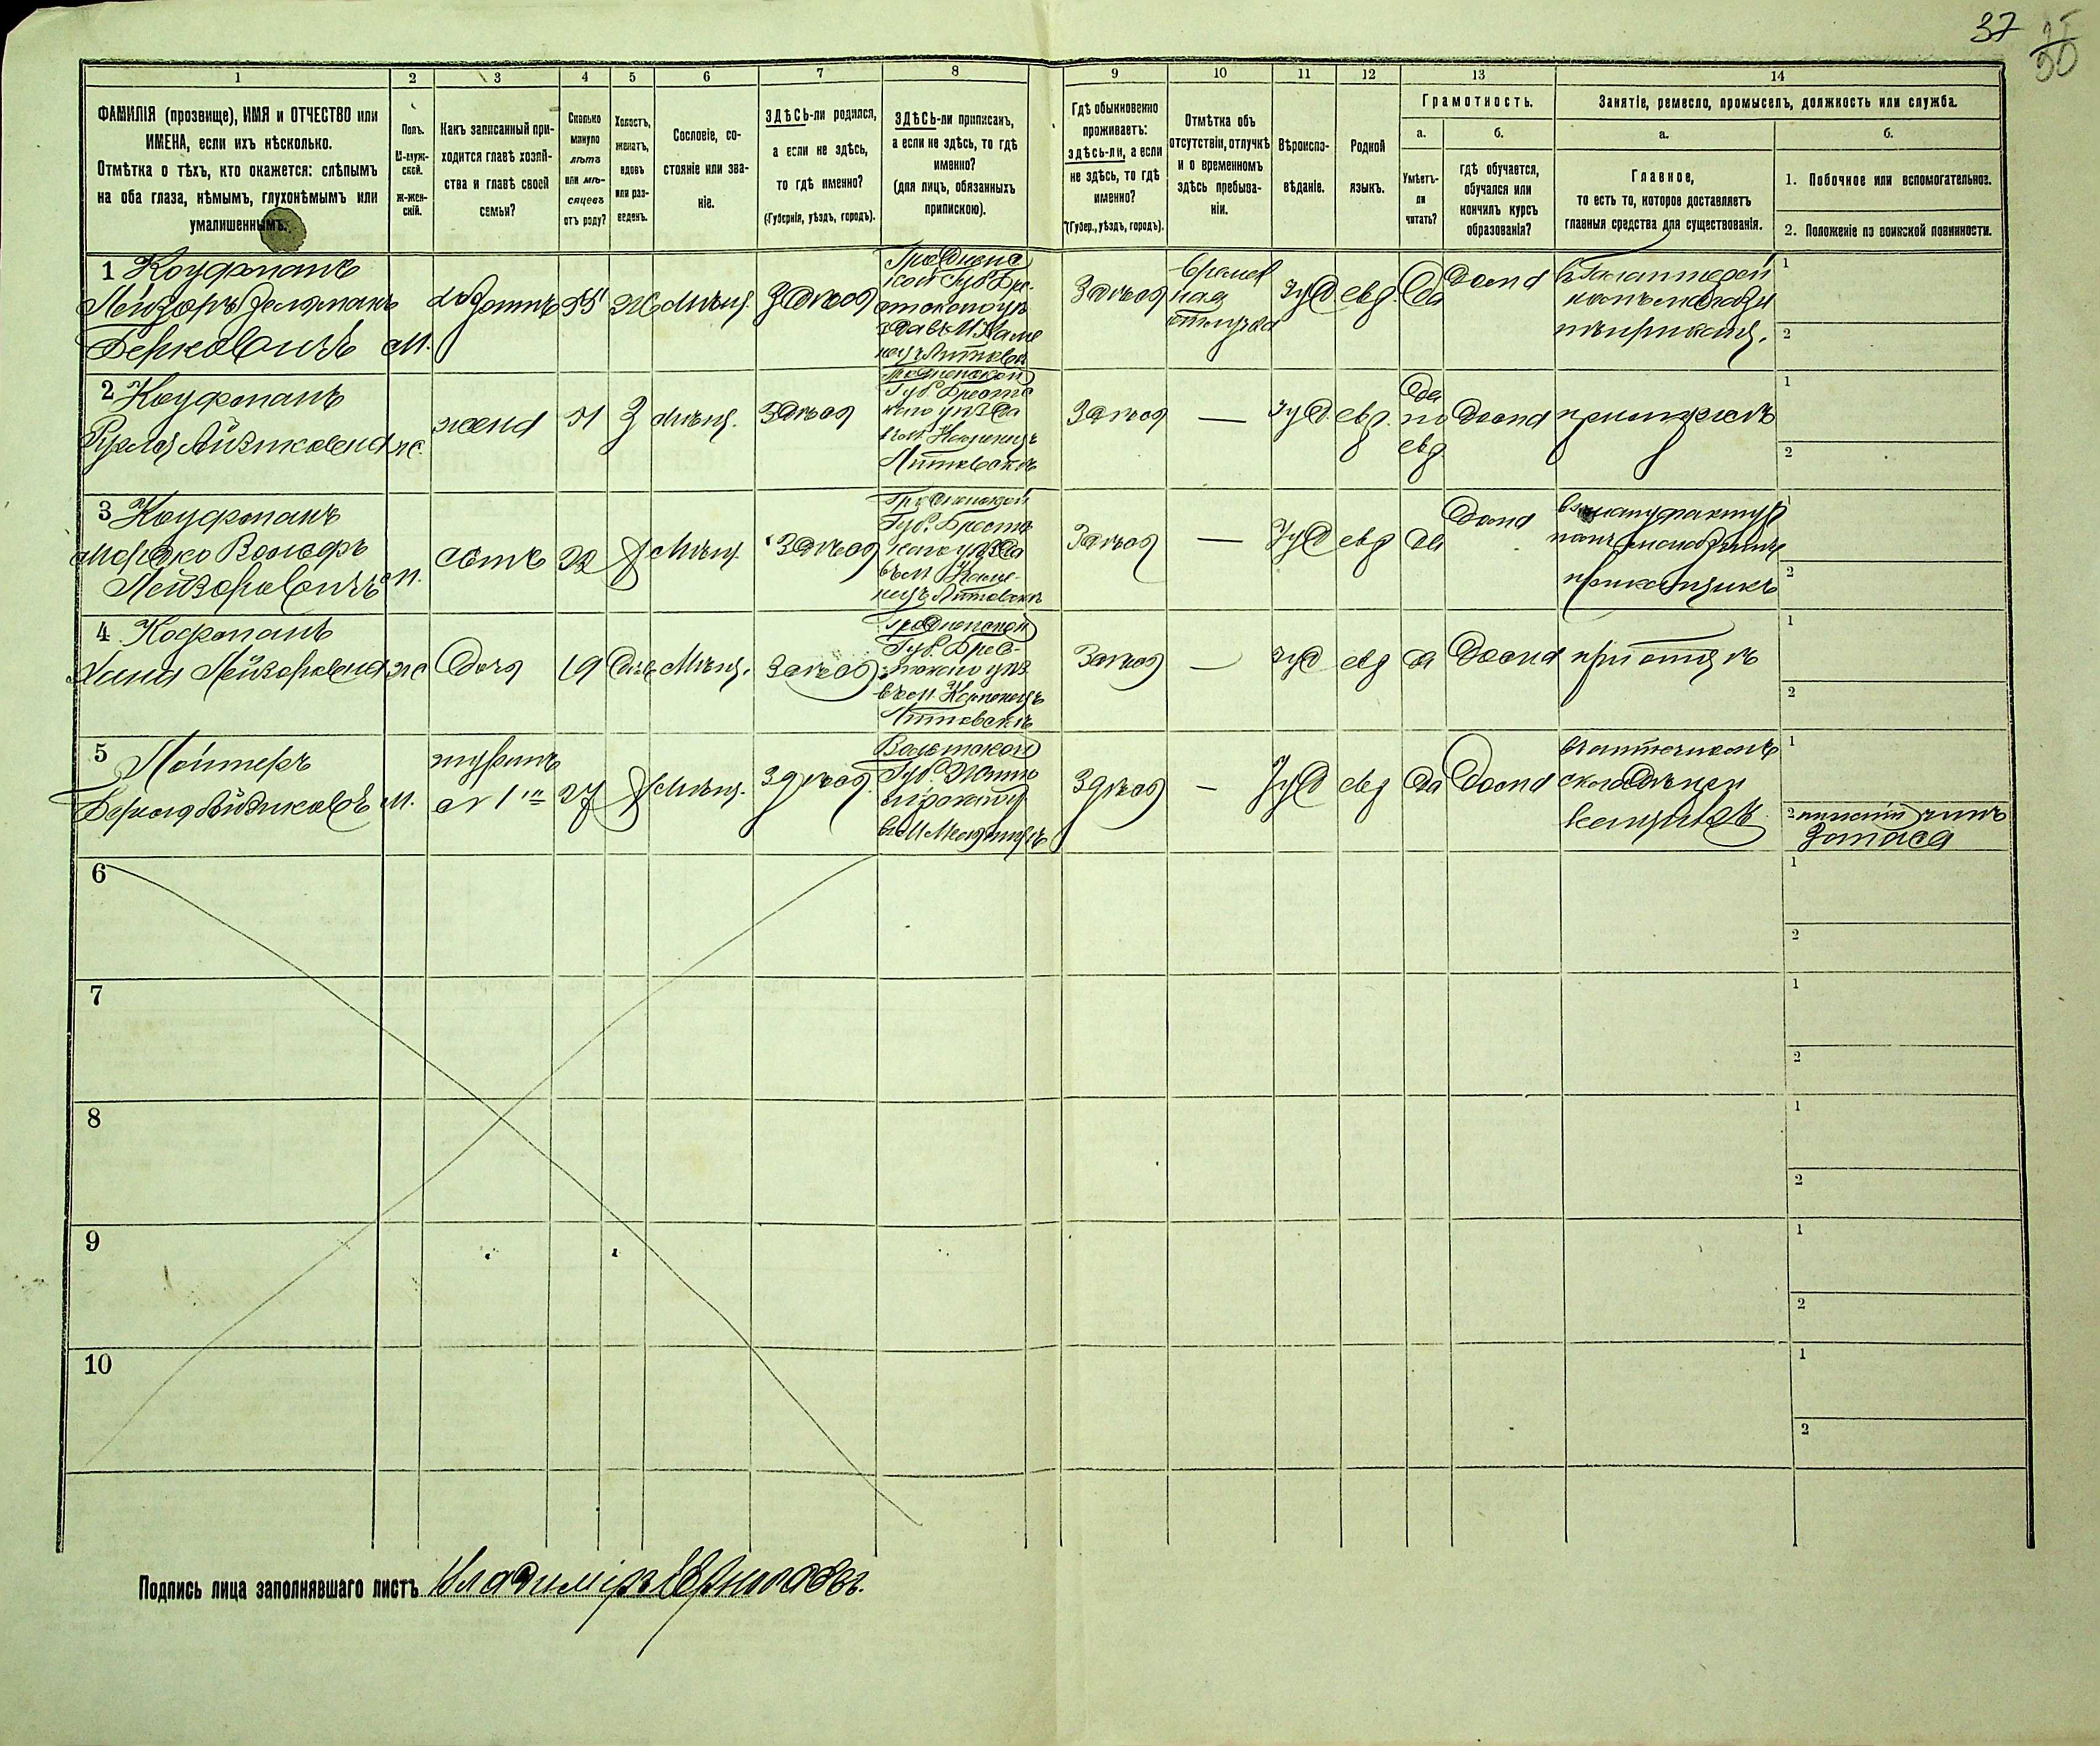 37
30
1 2 3 4 5 6 7 8 9 10 11 12 13 14
ФАМИЛІЯ (прозвище), ИМЯ и ОТЧЕСТВО или
ИМЕНА, если ихъ нѣсколько.
Отмѣтка о тѣхъ, кто окажется: слѣпымъ
на оба глаза, нѣмымъ, глухонѣмымъ или
умалишеннымъ.
Полъ.
М-муж-
ской.
ж-жен-
скій.
Какъ записанный при-
ходится главѣ хозяй-
ства и главѣ своей
семьи?
Сколько
минуло
лѣтъ
или мѣ-
сяцевъ
отъ роду?
Холостъ,
женатъ,
вдовъ
или раз-
веденъ.
Сословіе, со-
стояніе или зва-
ніе.
ЗДѢСЬ-ли родился,
а если не здѣсь,
то гдѣ именно?
(Губернія, уѣздъ, городъ).
ЗДѢСЬ-ли приписанъ,
а если не здѣсь, то гдѣ
именно?
(для лицъ, обязанныхъ
припискою).
Гдѣ обыкновенно
проживаетъ:
здѣсь-ли, а если
не здѣсь, то гдѣ
именно?
(Губер., уѣздъ, городъ).
Отмѣтка объ
отсутствіи, отлучкѣ
и о временномъ
здѣсь пребыва-
ніи.
Вѣроиспо-
вѣданіе.
Родной
языкъ.
Грамотность.
а.
Умѣетъ-
ли
читать?
б.
гдѣ обучается,
обучался или
кончилъ курсъ
образованія?
Занятіе, ремесло, промыселъ, должность или служба.
а.
Главное,
то есть то, которое доставляетъ
главныя средства для существованія.
б.
1. Побочное или вспомогательное.
2. Положеніе по воинской повинности.
1 Коуфманъ
Лейзоръ Зельманъ
Берковичъ
М.
хозяинъ
55
Ж
Мѣщ.
Здѣсь
Гроднен
ской Губ Бре
Здѣсь
времен
ная
отлучка
Іуд
евр.
Да
дома
1
2
2 Коуфманъ
Рухля Айзиковна
ж.
жена
51
З
Мѣщ.
Здѣсь
Гродненской
Губ. Брест
каго уѣзда
въ м. Каменецъ
Литовскъ
Здѣсь
—
Іуд.
евр.
Да
по
евр
Дома
при мужѣ
1
2
3 Коуфманъ
Мордко Вольфъ
Лейзоровичъ
м.
сынъ
22
Х
Мѣщ.
Здѣсь
Гродненской
Губ. Брест
каго уѣзда
въ м Каме-
нецъ Литовскъ
Здѣсь
—
Іуд
евр
Да
Дома
приказчикъ
1
2
4 Кофманъ
Хана Лейзоровна
ж
Дочь
19
Дѣв
Мѣщ.
Здѣсь
Гродненской
Губ. Брес-
тскаго уѣз
въ м. Каменецъ
Литовскъ
Здѣсь
—
Іуд
евр
да
Дома
при отцѣ
1
2
5
Берко Айзиковъ
М.
шуринъ
27
Х
Мѣщ.
Здѣсь
Волынской
Губ. Житом
ирскаго
Здѣсь
—
Іуд
евр
Да
Дома
1
2 нижній чинъ
запаса
6
1
2
7
1
2
8
1
2
9
1
2
10
1
2
Подпись лица заполнявшаго листъ Владиміръ